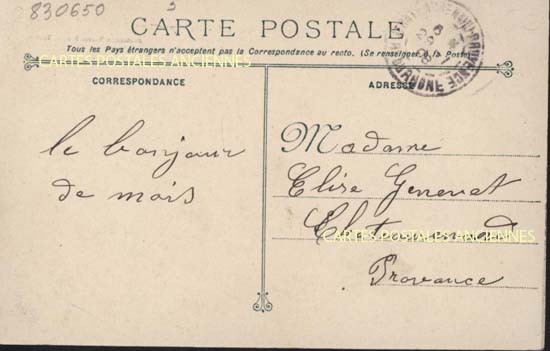 830650
CARTE POSTALE
Tous les Pays étrangers n'acceptent pas la Correspondance au recto. (Se renseigner à la Poste)
CARTES POSTALES ANCIENNES
CORRESPONDANCE
ADRESSE
le bonjour
de mois
Madame
Elise Genevet
CARTES POSTALES ANCIENNES
Provance